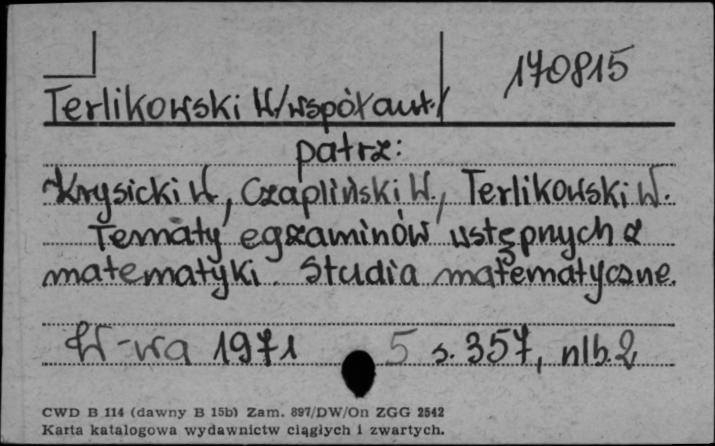 170815
Terlikowski W/współaut./
patrz:
Krysicki W, Czapliński W., Terlikowski W.
Tematy egzaminów wstępnych z
matematyki. Studia matematyczne.
W-wa 1971 5 s. 357, nlb. 2
CWD B 114 (dawny B 15b) Zam. 897/DW/On ZGG 2542
Karta katalogowa wydawnictw ciągłych i zwartych.